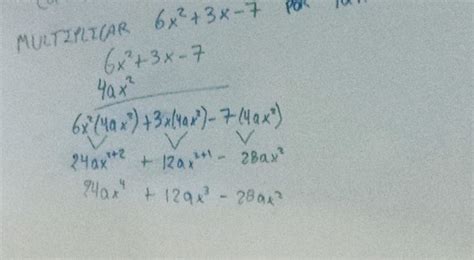 MULTIPLICAR 6x²+3x-7 POR
6x²+3x-7
4ax²
6x²(4ax²)+3x(4ax²)-7(4ax²)
24ax²⁺² + 12ax²⁺¹ - 28ax²
24ax⁴ + 12ax³ - 28ax²